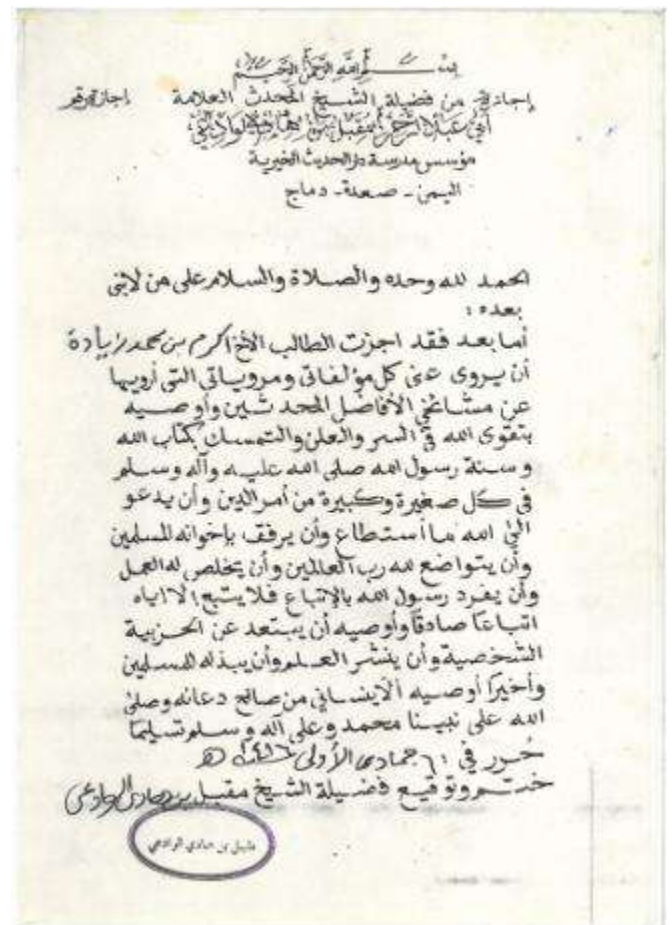 بسم الله الرحمن الرحيم
إجازة من فضيلة الشيخ المحدث العلامة إجازة رقم
أبي عبد الرحمن مقبل بن هادي الوادعي
مؤسس مدرسة دار الحديث الخيرية
اليمن - صعدة - دماج
الحمد لله وحده والصلاة والسلام على من لا نبي
بعده :
أما بعد فقد اجزت الطالب الأخ اكرم بن محمد زيادة
أن يروي عني كل مؤلفاتي ومروياتي التي أرويها
عن مشائخي الأفاضل المحدثين وأوصيه
بتقوى الله في السر والعلن والتمسك بكتاب الله
وسنة رسول الله صلى الله عليه وآله وسلم
في كل صغيرة وكبيرة من أمر الدين وأن يدعو
الى الله ما أستطاع وأن يرفق بإخوانه المسلمين
وأن يتواضع لله رب العالمين وأن يخلص له العمل
وأن يفرد رسول الله بالإتباع فلا يتبع إلا اياه
اتباعًا صادقًا وأوصيه أن يبتعد عن الحزبية
الشخصية وأن ينشر العلم وأن يبذله للمسلمين
وأخيرًا أوصيه ألا ينساني من صالح دعائه وصلى
الله على نبينا محمد وعلى آله وسلم تسليمًا
حرر في ٦ جمادى الأولى ١٤١٦ هـ
ختم وتوقيع فضيلة الشيخ مقبل بن هادي الوادعي
مقبل بن هادي الوادعي